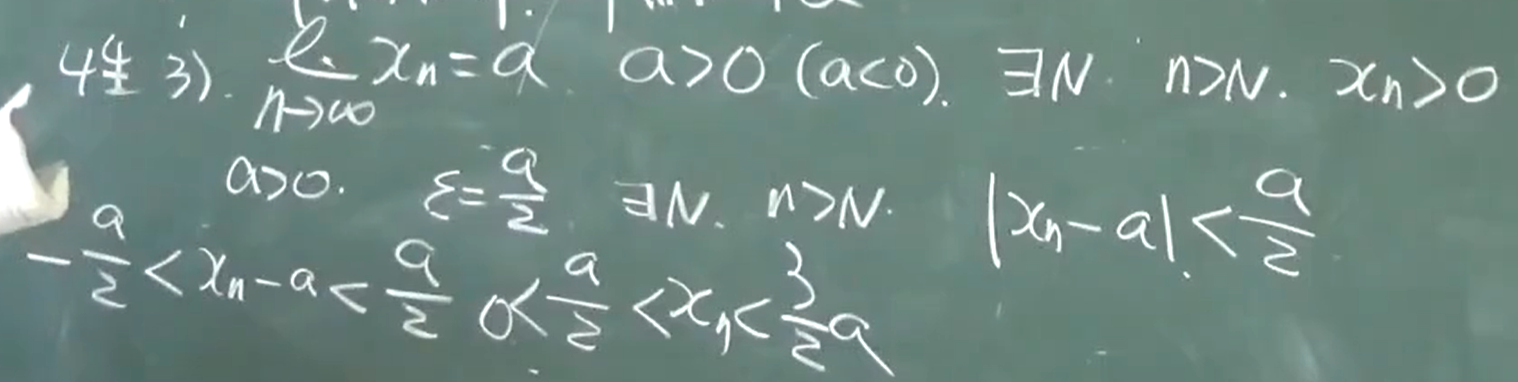 性3). lim n→∞ xn = a a>0 (a<0). ∃N. n>N. xn>0
a>0. ε=a/2 ∃N. n>N. |xn-a|<a/2
-a/2<xn-a<a/2 0<a/2<xn<3/2a